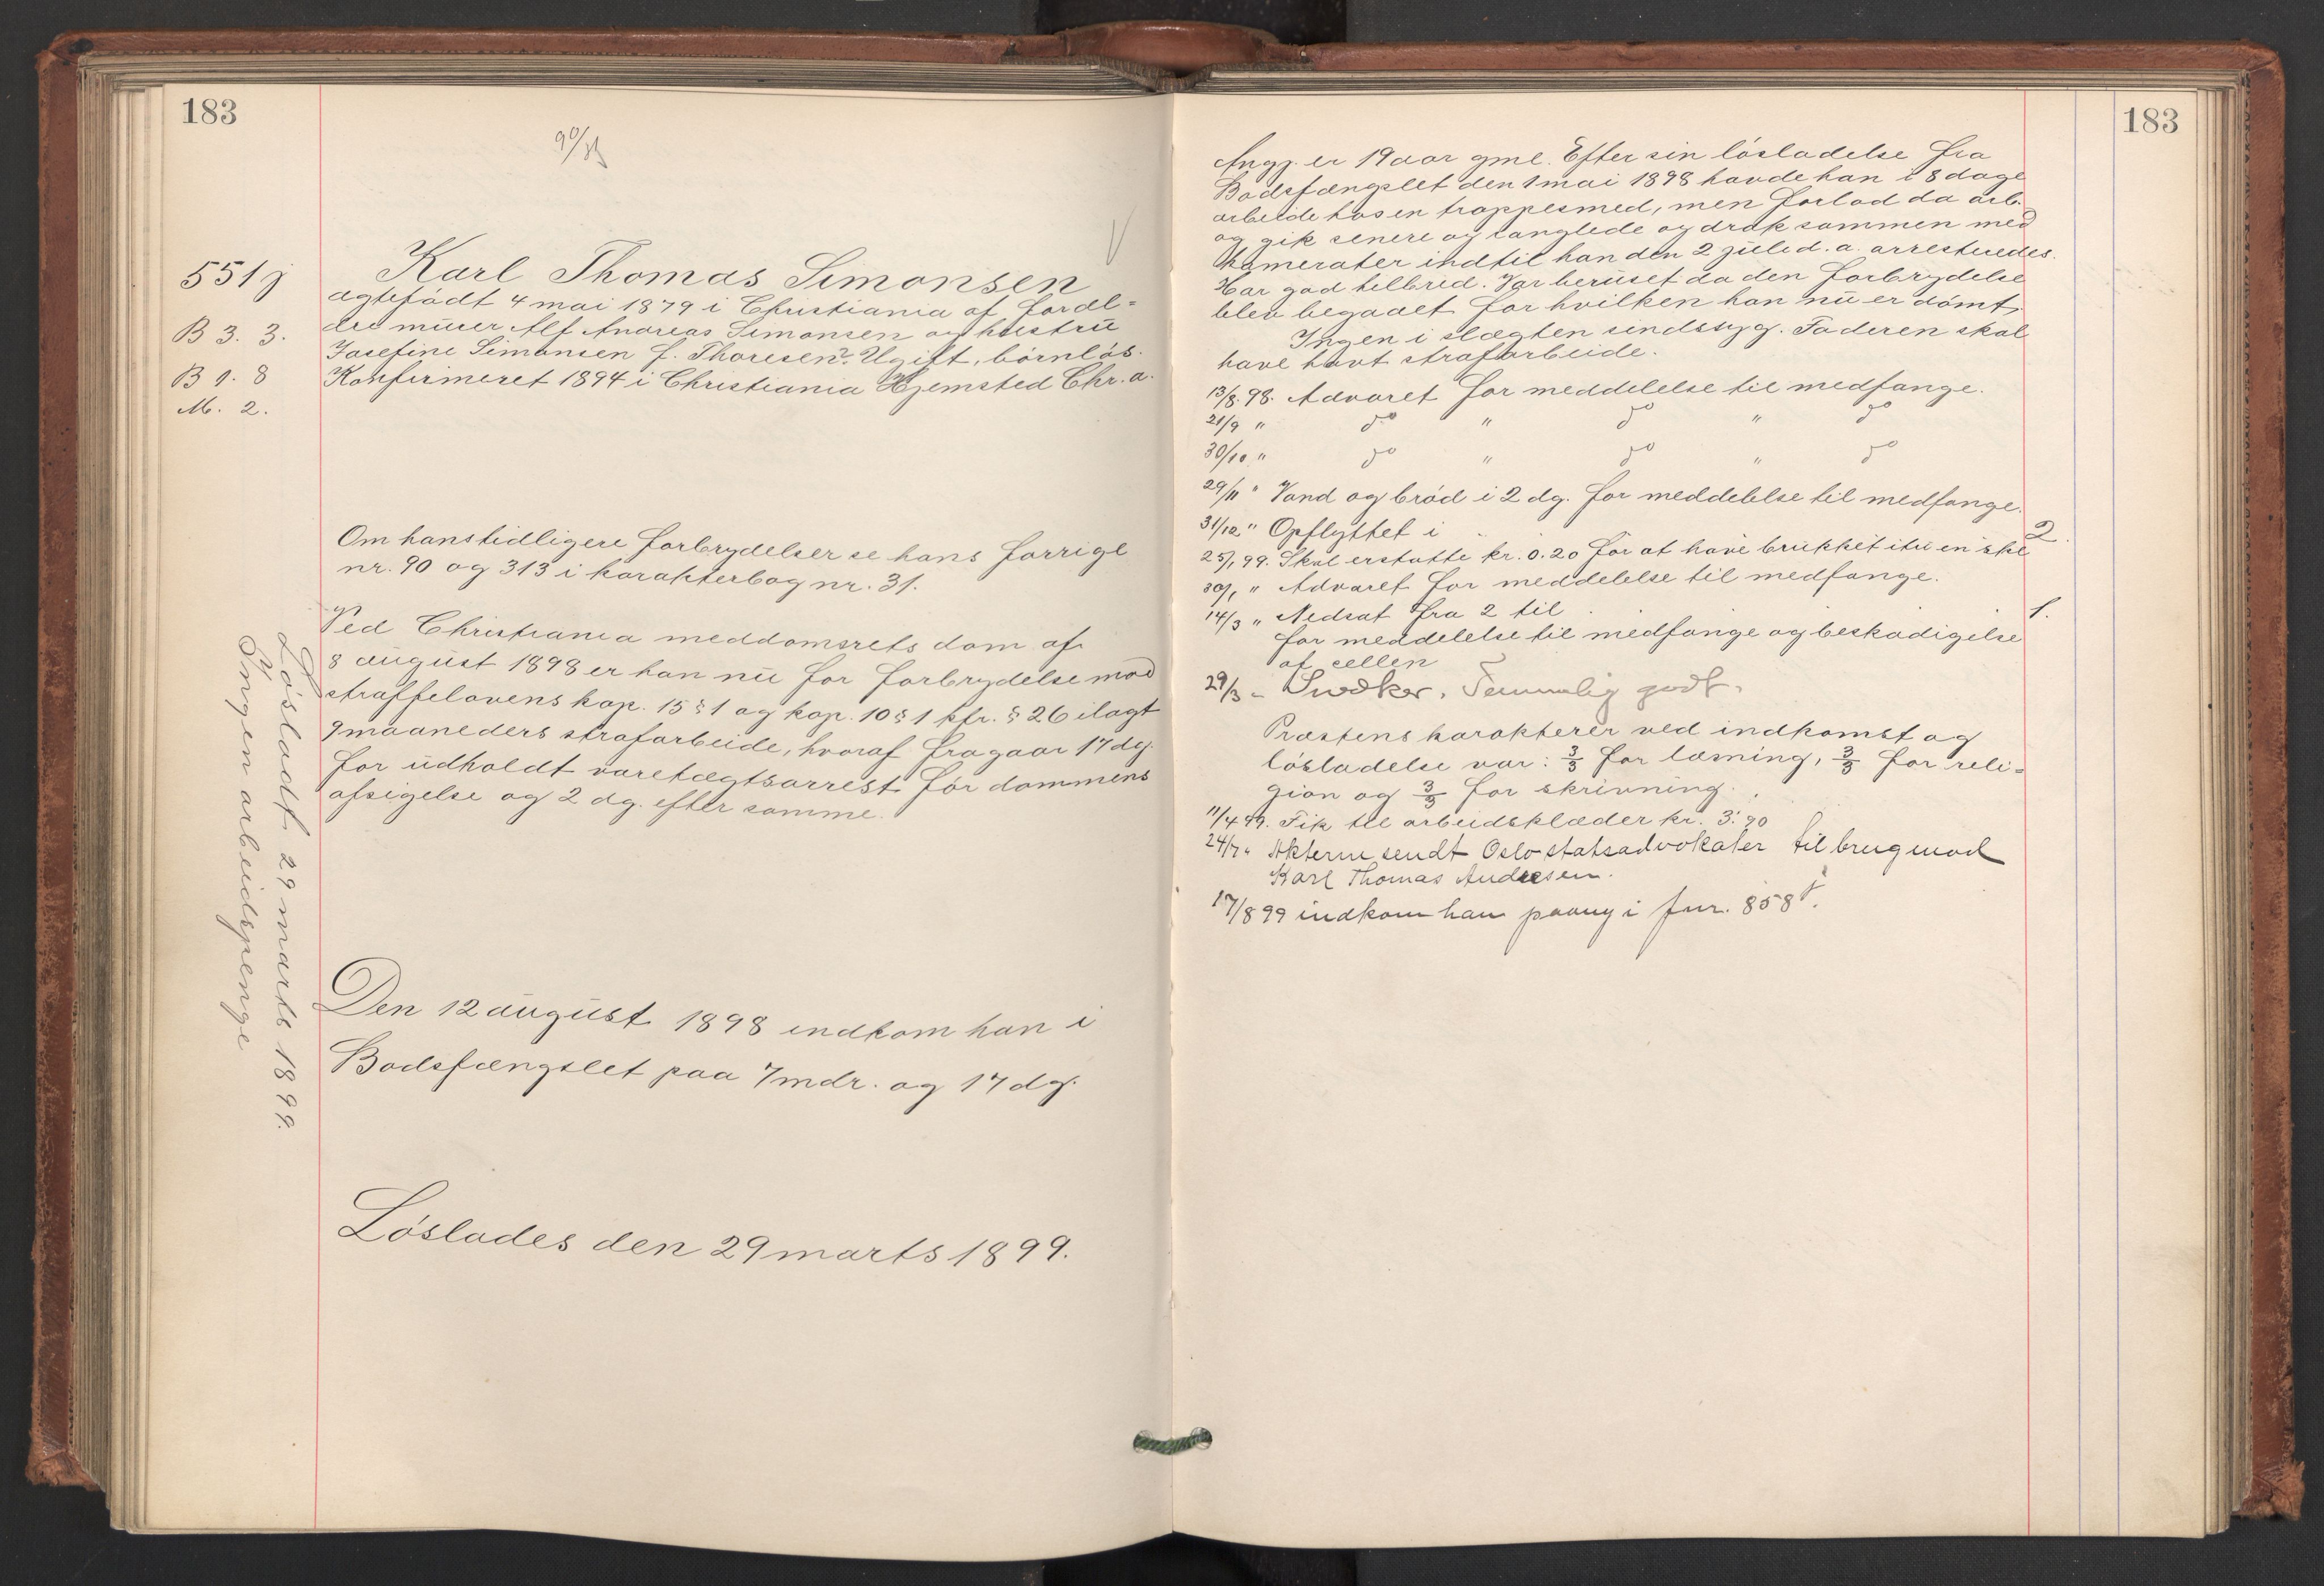 183
90/31
551 j
B 3. 3.
B 1. 8
M. 2.
Karl Thomas Simonsen
ægtefödt 4 mai 1879 i Christiania af foræl-
dre murer Alf Andreas Simonsen og hustru
Josefine Simonsen f. Thoresen. Ugift, börnlös.
Konfirmeret 1894 i Christiania Hjemsted Chr.a.
Om hans tidligere forbrydelser se hans forrige
nr. 90 og 313 i karakterbog nr. 31.
Ved Christiania meddomsrets dom af
8 august 1898 er han nu for forbrydelse mod
straffelovens kap. 15 § 1 og kap. 10 § 1 kfr. § 26 ilagt
9 maaneders strafarbeide, hvoraf fragaar 17 dg.
for udholdt varetægtsarrest för dommens
afsigelse og 2 dg. efter samme.
Den 12 august 1898 indkom han i
Bodsfængslet paa 7 mdr. og 17 dg.
Löslades den 29 marts 1899.
Lösladt 29 marts 1899.
Ingen arbeidspenge
183
Angj. er 19 aar gml. Efter sin lösladelse fra
Bodsfængslet den 1 mai 1898 havde han i 8 dage
arbeide hos en trappesmed, men forlod da arb.
og gik senere og ranglede og drak sammen med
kamerater indtil han den 2 juli d. a. arresteredes.
Har god helbred. Var beruset da den forbrydelse
blev begaaet for hvilken han nu er dömt.
Ingen i slægten sindssyg. Faderen skal
have havt strafarbeide.
13/8. 98. Advaret for meddelelse til medfange.
21/9 " do " do " do
30/10 " do " do " do
29/11 " Vand og bröd i 2 dg. for meddelelse til medfange.
31/12 " Opflyttet i 2.
25/1 99. Skal erstatte kr. 0.20 for at have brukket itu en ske
30/1 " Advaret for meddelelse til medfange.
14/3 " Nedsat fra 2 til 1.
for meddelelse til medfange og beskadigelse
af cellen
29/3 - Snedker. Temmelig godt.
Prestens karakterer ved indkomst og
lösladelse var: 3/3 for læsning, 3/3 for reli-
gion og 3/3 for skrivning.
11/4 99. Fik til arbeidsklæder kr. 3.90
24/7 " Akterne sendt Oslo statsadvokater til brug mod
Karl Thomas Andresen.
17/8 99 indkom han paany i fnr. 858 j.